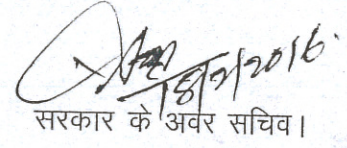 18/2/2016.
सरकार के अवर सचिव।